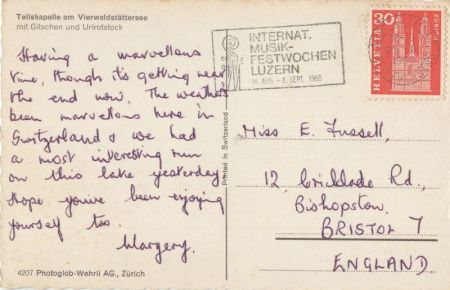 Tellskapelle am Vierwaldstättersee
mit Gitschen und Urirotstock
Having a marvellous
time, though it's getting near
the end now. The weather's
been marvellous here in
Switzerland & we had
a most interesting run
on this lake yesterday.
Hope you've been enjoying
yourself too.
Margery.
4207 Photoglob-Wehrli AG., Zürich
Printed in Switzerland
INTERNAT.
MUSIK-
FESTWOCHEN
LUZERN
14. AUG. - 8. SEPT. 1968
30
HELVETIA
ZÜRICH
Miss E. Fussell,
12, Cricklade Rd.,
Bishopston,
BRISTOL 7
ENGLAND.